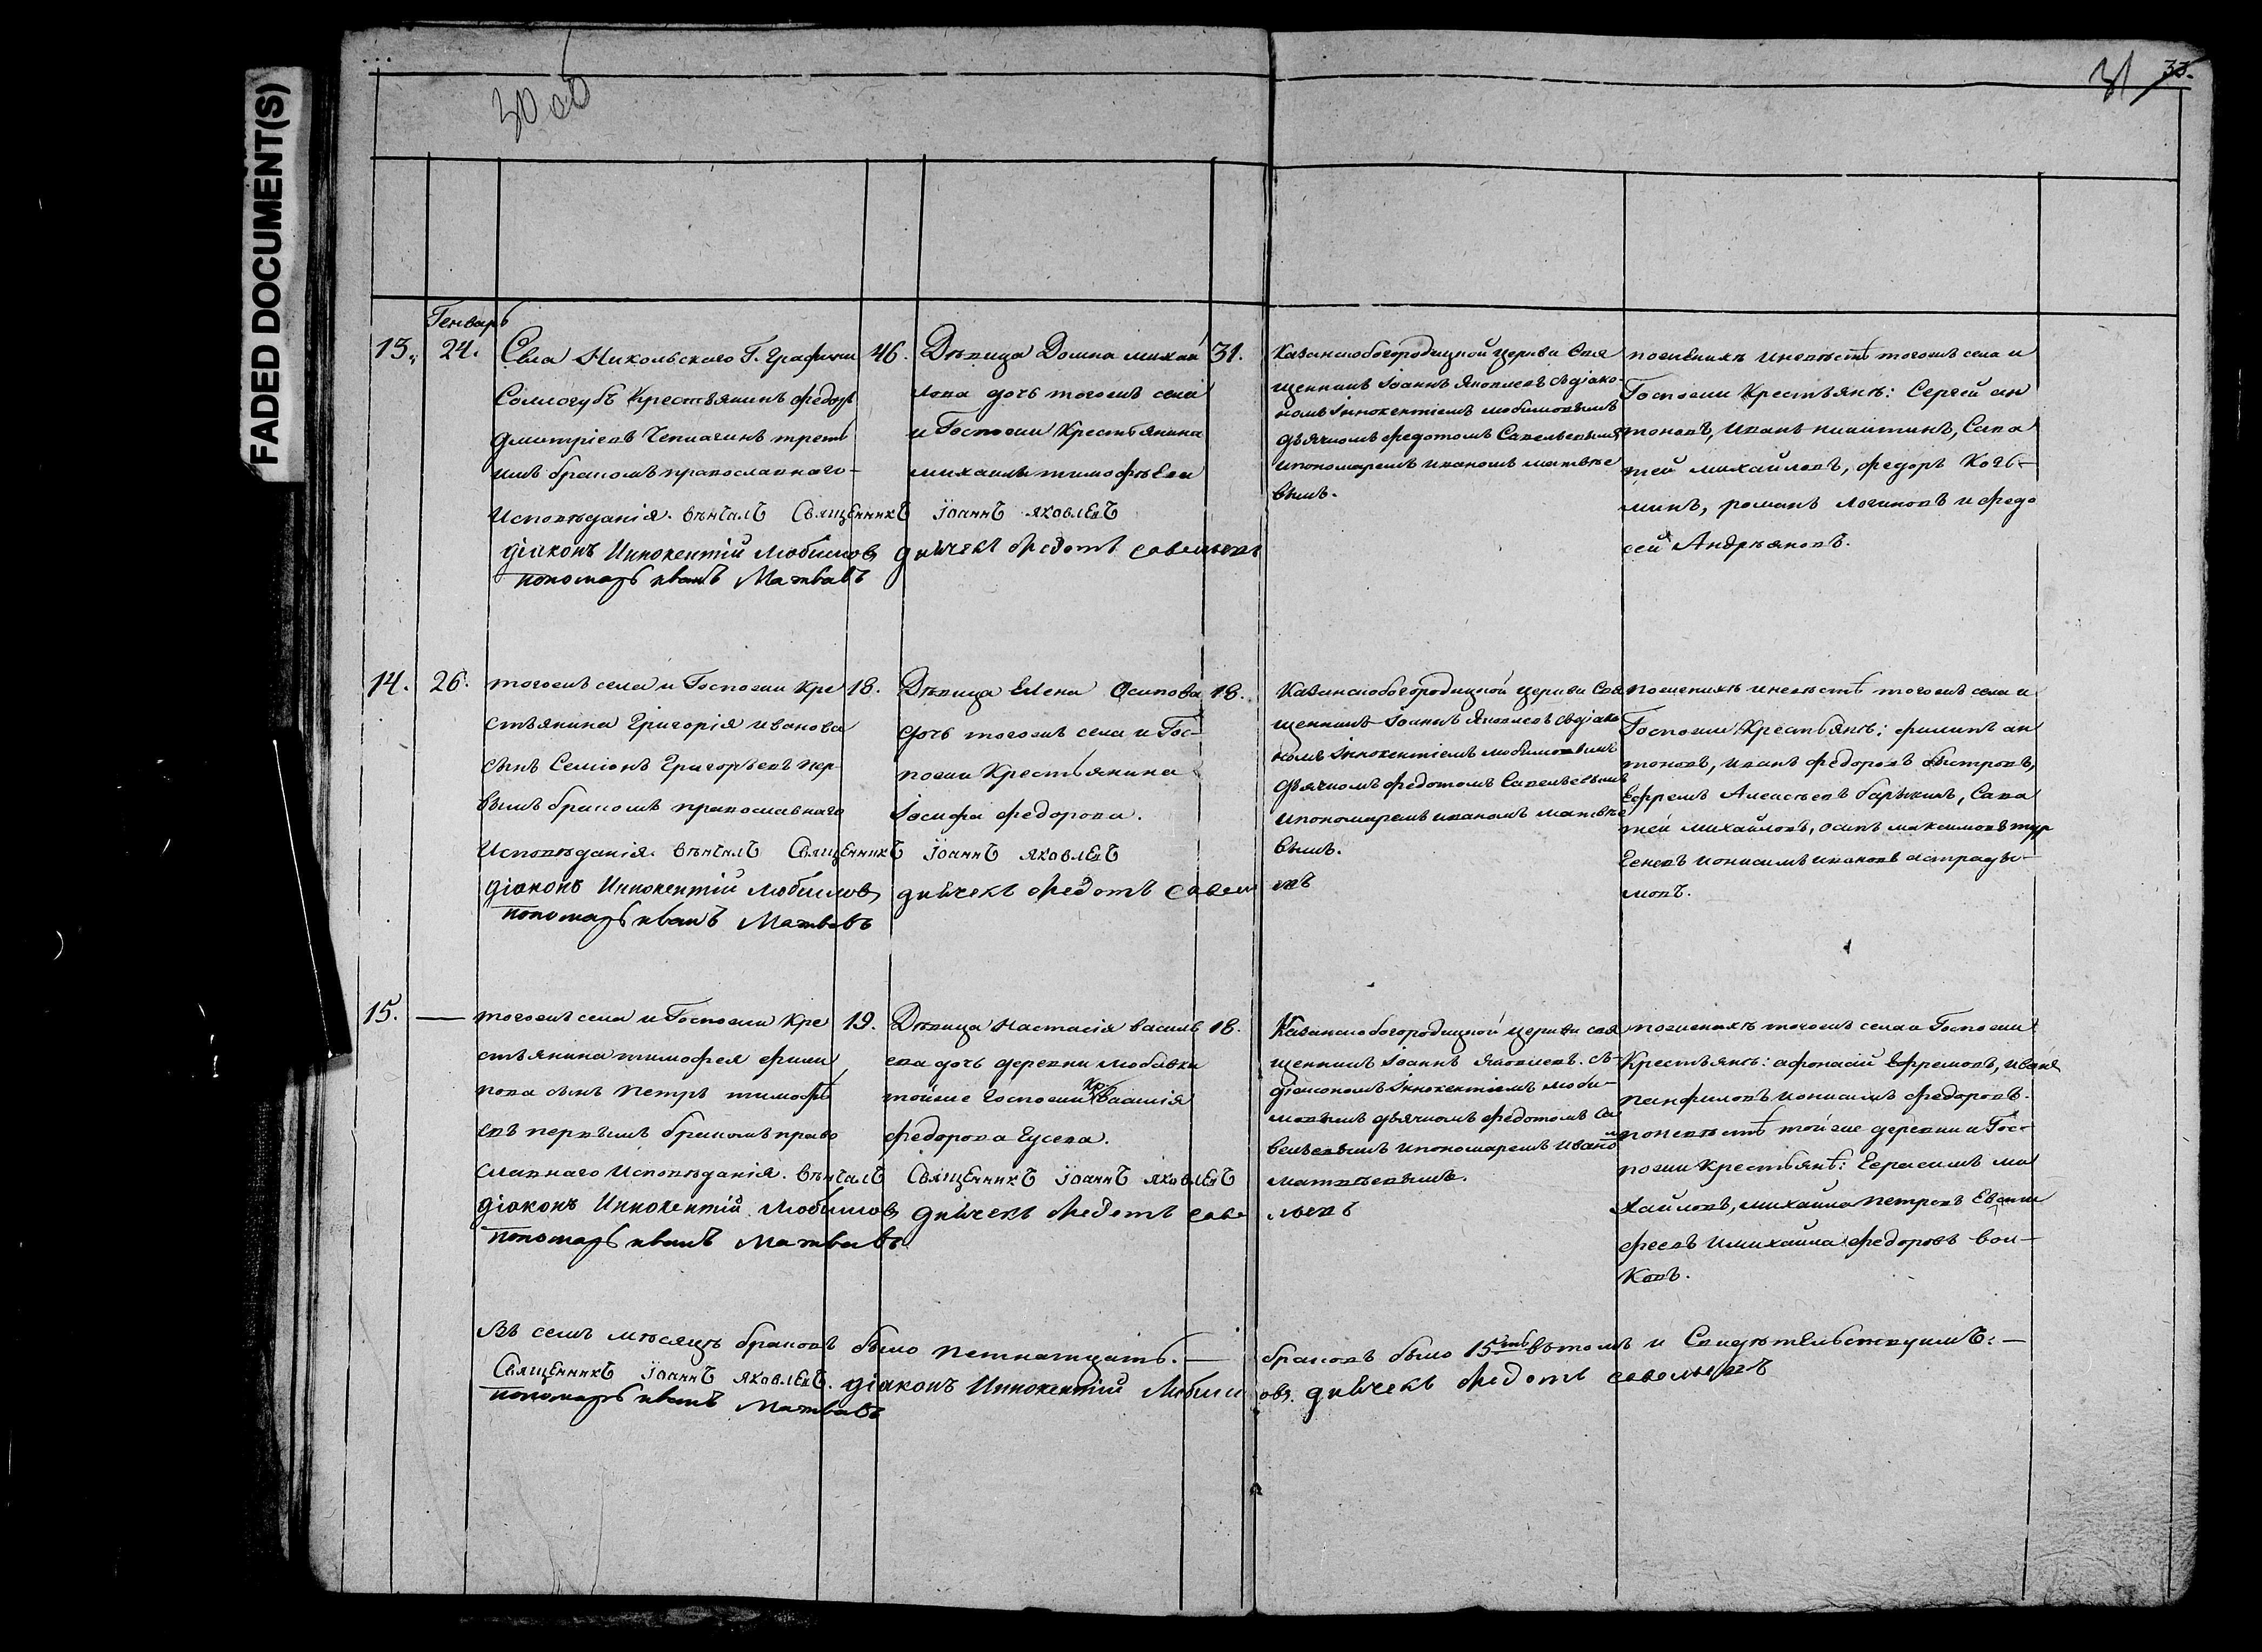 FADED DOCUMENT(S)
30 об
31 33.
Генварь
13. 24. Села Никольскаго Г. Графини
Соллогубъ Крестьянинъ федоръ
дмитріевъ Чепчагинъ треть
имъ бракомъ православнаго
Исповѣданія. вѣнчалъ Священникъ Іоаннъ яковлевъ
діаконъ Иннокентій Любимовъ дьячекъ Федотъ савельевъ
пономарь иванъ Матвевъ
46. Дѣвица Домна михай
лова дочь тогожъ села
и Госпожи Крестьянина
михаила тимофѣева
31. Казанскобогородицкой церкви Свя
щенникъ Іоаннъ Яковлевъ съ діако
номъ Іннокентіемъ любимовымъ
дьячкомъ федотомъ Савельевымъ
ипономаремъ иваномъ матвѣе
вымъ.
поженихѣ иневѣстѣ тогожъ села и
Госпожи Крестьянъ: Сергей ан
тоновъ, иванъ никитинъ, Сава
тей михайловъ, федоръ Козь-
минъ, романъ логиновъ и федо
сей Андрѣяновъ.
14. 26. тогожъ села и Госпожи Кре
стьянина Григорія иванова
сынъ Семіонъ Григорьевъ пер
вымъ бракомъ православнаго
Исповѣданія. вѣнчалъ Священникъ Іоаннъ яковлевъ
діаконъ Иннокентій Любимовъ дьячекъ Федотъ савельевъ
пономарь иванъ Матвевъ
18. Дѣвица Елена Осипова
дочь тогожъ села и Гос-
пожи Крестьянина
Іосифа федорова.
18. Казанскобогородицкой церкви Свя
щенникъ Іоаннъ Яковлевъ съ діако
номъ Іннокентіемъ любимовымъ
дьячкомъ федотомъ Савельевымъ
ипономаремъ иваномъ матвѣе
вымъ.
поженихѣ иневѣстѣ тогожъ села и
Госпожи Крестьянъ: филипъ ан
тоновъ, иванъ федоровъ быстровъ,
Ефремъ Алексѣевъ барыкинъ, Сава
тей михайловъ, осипъ максимовъ тур
геневъ ионисимъ ивановъ астрады-
мовъ.
15. — тогожъ села и Госпожи Кре
стьянина тимофея фили
пова сынъ Петръ тимофѣ
евъ первымъ бракомъ право
славнаго Исповѣданія. вѣнчалъ Священникъ Іоаннъ яковлевъ
діаконъ Иннокентій Любимовъ дьячекъ Федотъ савельевъ
пономарь иванъ Матвевъ
19. Дѣвица Настасія василь
ева дочь деревни любавки
тойже Госпожи кр василія
федорова Гусева.
18. Казанскобогородицкой церкви свя
щенникъ Іоаннъ Яковлевъ. съ
діакономъ Іннокентіемъ люби-
мовымъ дьячкомъ федотомъ Са
вельевымъ ипономаремъ ивано
матвѣевымъ.
поженихѣ тогожъ села и Госпожи
Крестьянъ: афонасій Ефремовъ, иванъ
панфиловъ ионисимъ федоровъ.
поневѣстѣ тойже деревни и Гос-
пожи крестьянъ: Герасимъ ми
хайловъ, михайла петровъ Евти
феевъ имихайла федоровъ вол-
ковъ.
Въ семъ мѣсяцѣ браковъ было петнатцать. — браковъ было 15ть вътомъ и Свидѣтельствуимъ: —
Священникъ Іоаннъ яковлевъ. діаконъ Иннокентій Любимовъ. дьячекъ Федотъ савельевъ
пономарь иванъ Матвевъ